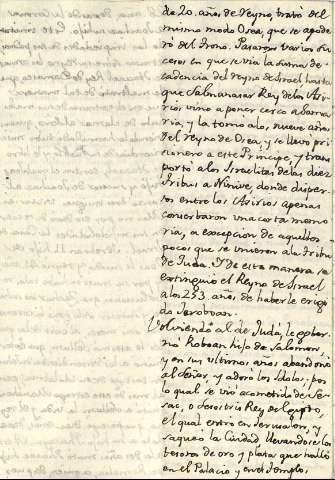 de 20. años de reyno, trató del
mismo modo Osea, que se apode
ró del trono. Pasaron varios su
cesos en que se via la suma de-
cadencia del reyno de Israel hasta
que Salmanasar Rey de los Asi-
rios vino a poner cerco a Sama
ria, y la tomó a los nueve años
del reyno de Osea, y se llevó pri-
sionero a este Principe, y trans
portó a los Israelitas de las diez
tribus a Ninive, donde disper-
sos entre los Asirios apenas
conservaron una corta memo
ria, a excepcion de aquellos
pocos que se unieron a la tribu
de Juda. Y de esta manera se
extinguió el Reyno de Israel
a los 253. años de haberle erigi
do Jeroboan.
Volviendo al de Judá, le gober
nó Roboan hijo de Salomon
y en sus ultimos años abandonó
al Señor, y adoró los Idolos; por
lo qual se vió acometido de Se-
sac, o Sesostris Rey de Egipto,
el qual entró en Jerusalen, y
saqueó la Ciudad, llevandose los
tesoros de oro y plata que halló
en el Palacio y en el templo.